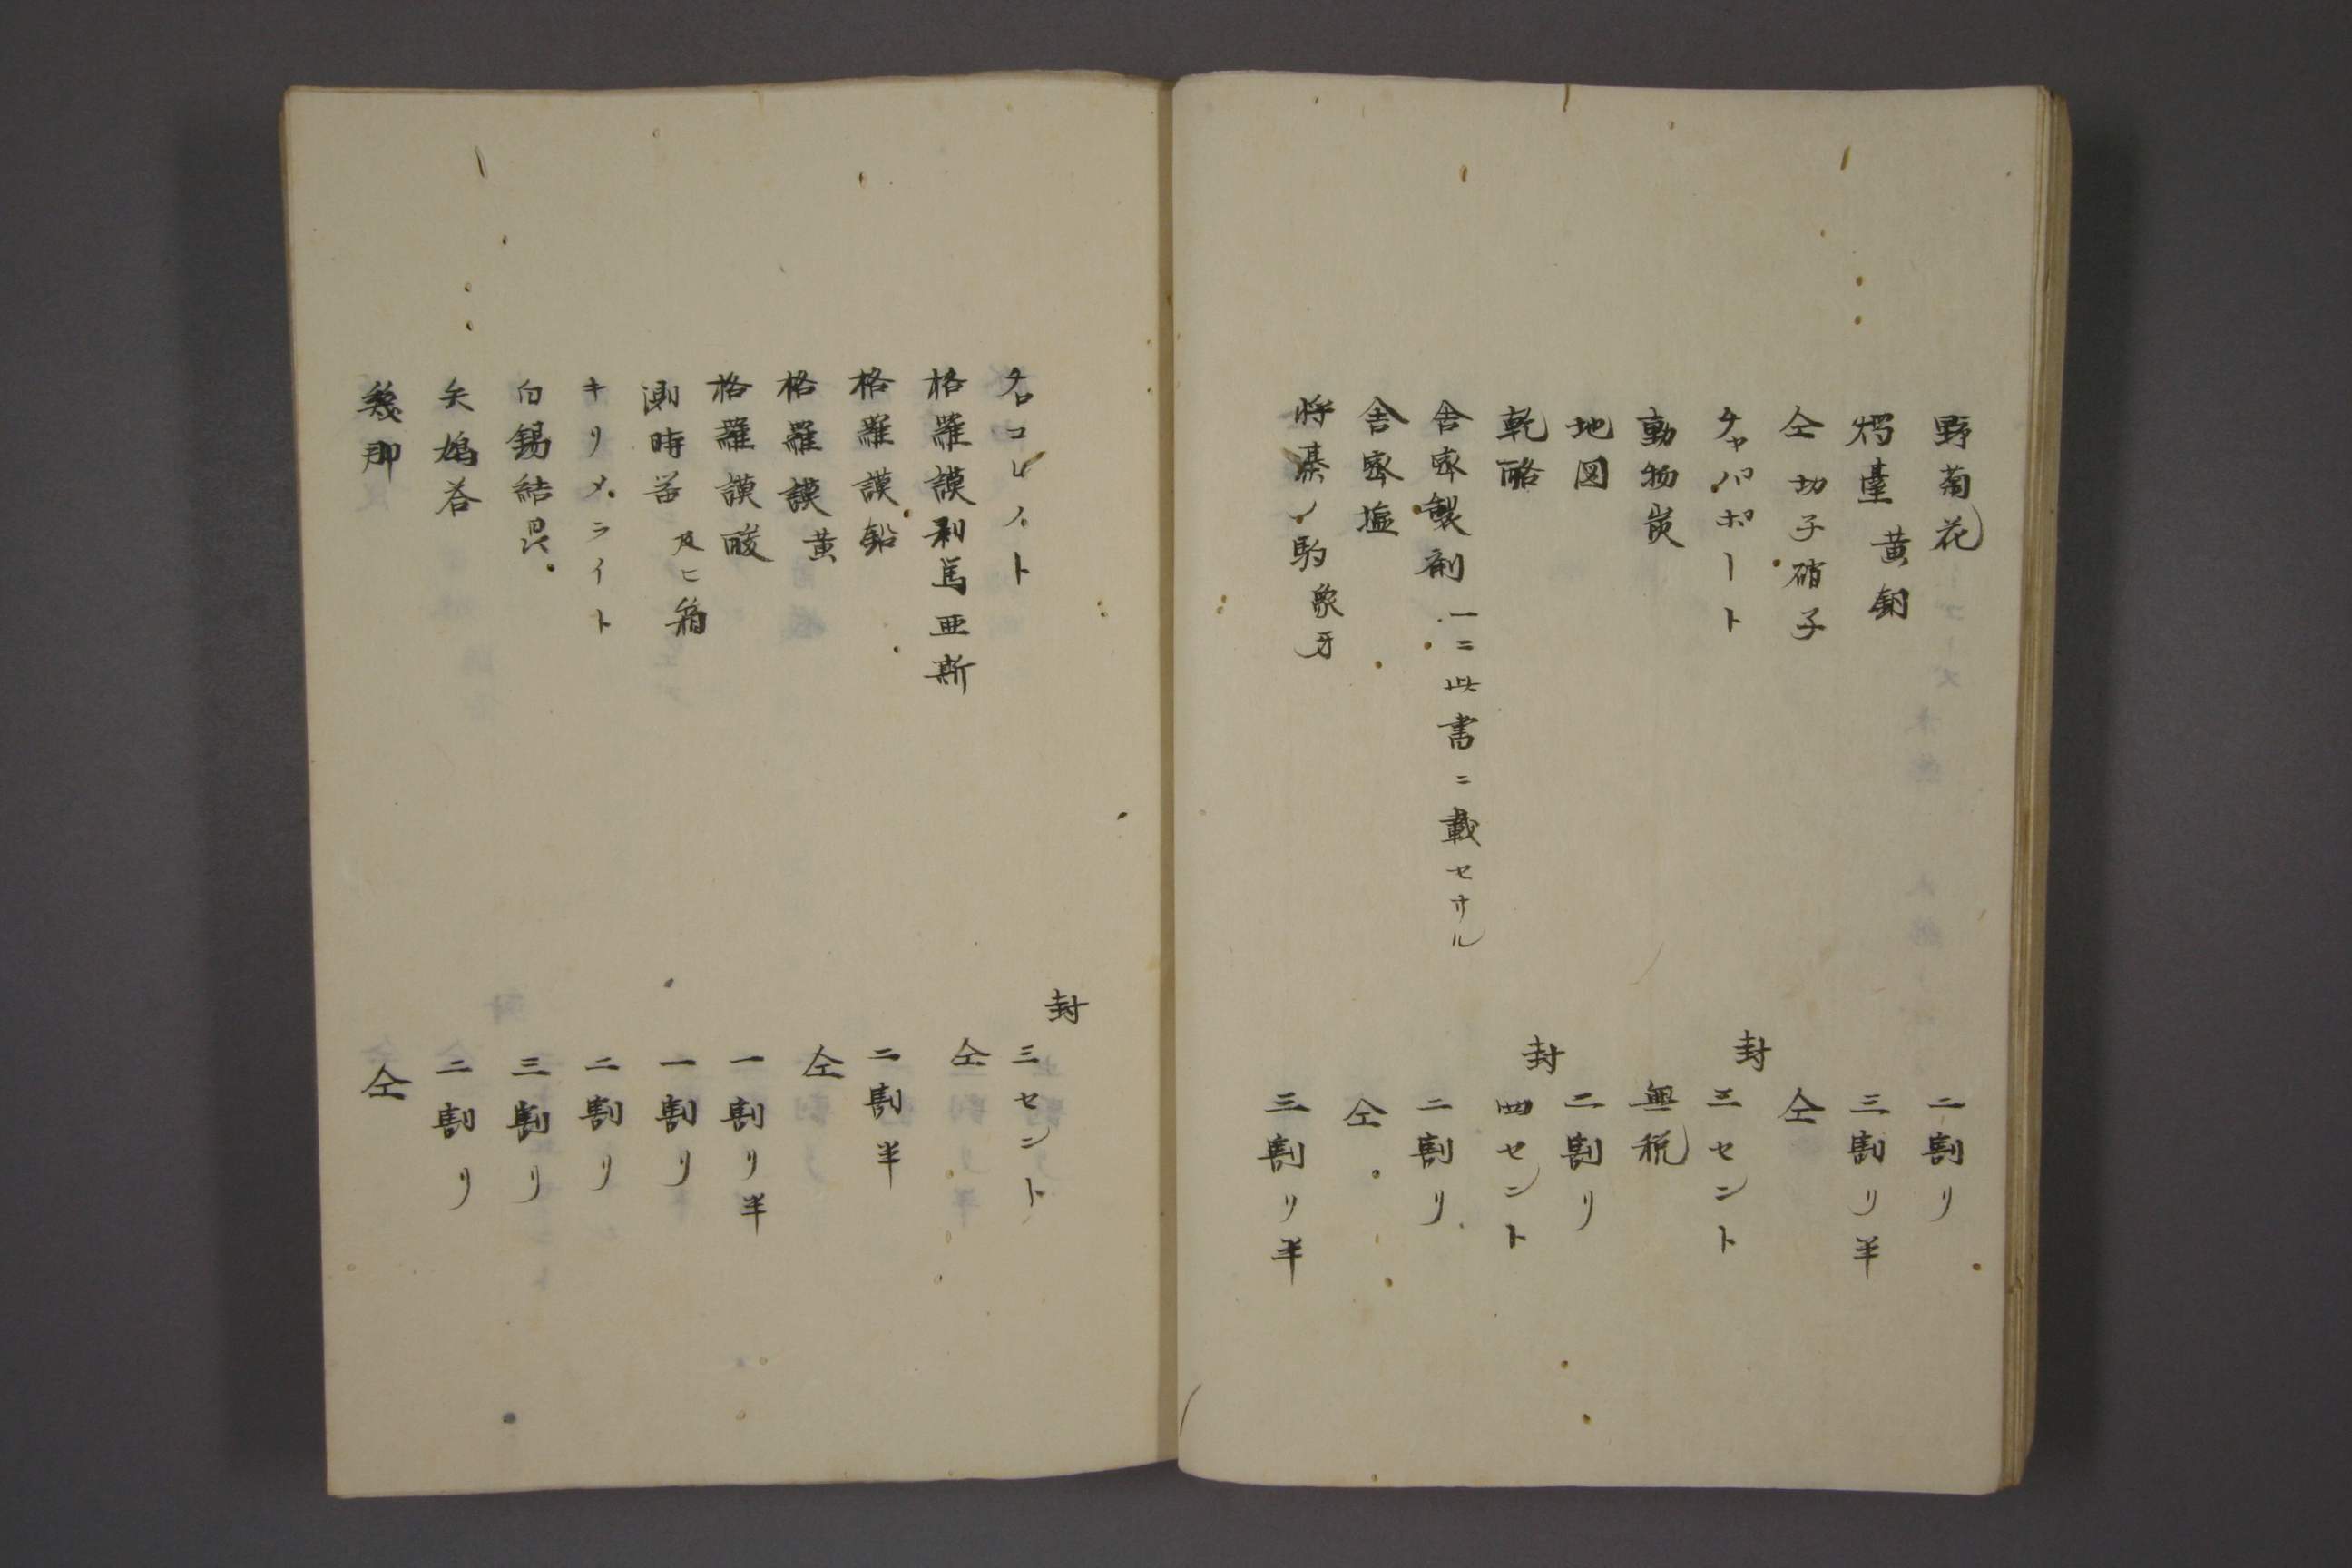 野菊花 二割リ
燭臺 黄銅 三割リ半
仝 切子硝子 仝
チャパポート 封三セント
動物炭 無税
地図 二割リ
乾酪 封四セント
舎密製剤 一ニ此書ニ載セサル 二割リ
舎密塩 仝
将棊ノ駒 象牙 三割リ半
チロコレート 封三セント
格羅謨剥馬亜斯 仝
格羅謨鉛 二割半
格羅謨黄 仝
格羅謨酸 一割リ半
測時器 及ヒ箱 一割リ
キリメライト 二割リ
白錫結晶 三割リ
矢鳩答 二割リ
幾那 仝